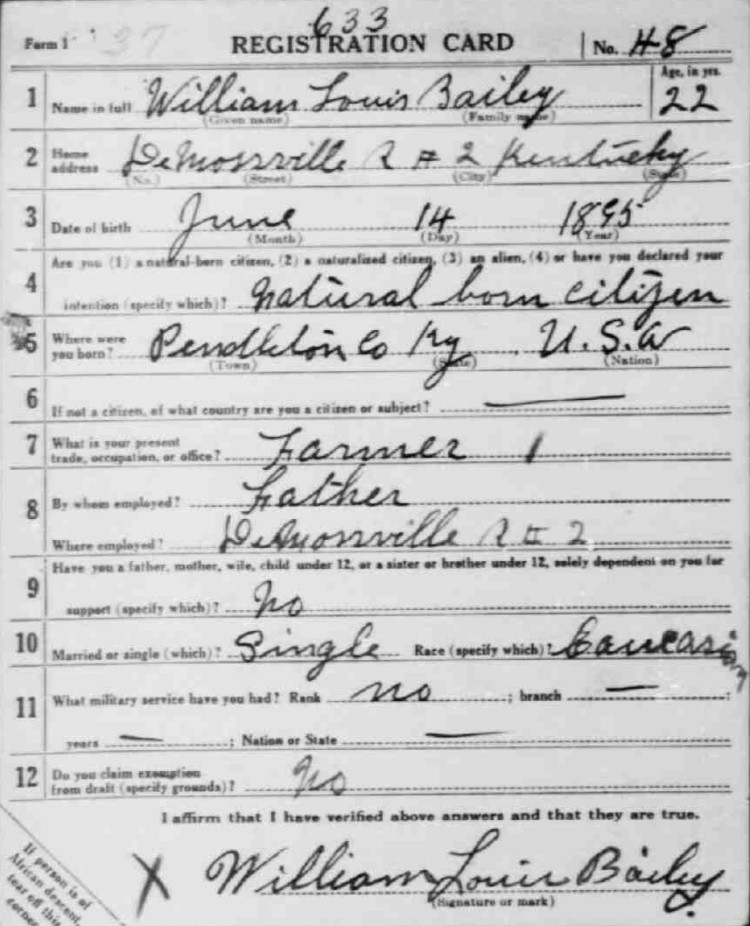 633
Form 1 37 REGISTRATION CARD No. 48
1 Name in full William Louis Bailey Age, in yrs. 22
(Given name) (Family name)
2 Home address DeMossville R # 2 Kentucky
(No.) (Street) (City) (State)
3 Date of birth June 14 1895
(Month) (Day) (Year)
4 Are you (1) a natural-born citizen, (2) a naturalized citizen, (3) an alien, (4) or have you declared your
intention (specify which)? natural born citizen
5 Where were you born? Pendleton Co Ky U.S.A
(Town) (State) (Nation)
6 If not a citizen, of what country are you a citizen or subject? —
7 What is your present trade, occupation, or office? Farmer 1
8 By whom employed? Father
Where employed? DeMossville R # 2
9 Have you a father, mother, wife, child under 12, or a sister or brother under 12, solely dependent on you for
support (specify which)? No
10 Married or single (which)? Single Race (specify which)? Caucasian
11 What military service have you had? Rank no ; branch — ;
years — ; Nation or State —
12 Do you claim exemption from draft (specify grounds)? No
I affirm that I have verified above answers and that they are true.
X William Louis Bailey
(Signature or mark)
If person is of
African descent,
tear off this
corner